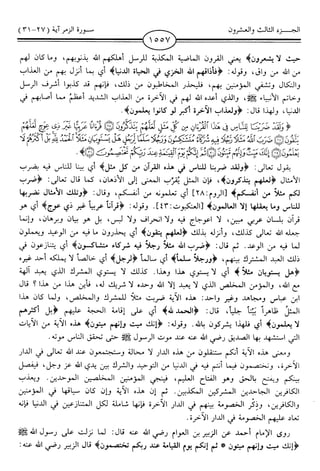 الجـــزء الثالث والعشرون
١٥٥٧
سـورة الزمر آية (٢٧-٣١)
حيث لا يشعرون﴾ يعني القرون الماضية المكذبة للرسل أهلكهم الله بذنوبهم، وما كان لهم
من الله من واق، وقوله: ﴿فأذاقهم الله الخزي في الحياة الدنيا﴾ أي بما أنزل بهم من العذاب
والنكال وتشفي المؤمنين بهم، فليحذر المخاطبون من ذلك، فإنهم قد كذبوا أشرف الرسل
وخاتم الأنبياء ﷺ، والذي أعده الله لهم في الآخرة من العذاب الشديد أعظم مما أصابهم في
الدنيا، ولهذا قال: ﴿ولعذاب الآخرة أكبر لو كانوا يعلمون﴾.
﴿وَلَقَدْ ضَرَبْنَا لِلنَّاسِ فِي هَٰذَا الْقُرْآنِ مِن كُلِّ مَثَلٍ لَّعَلَّهُمْ يَتَذَكَّرُونَ ۝ قُرْآنًا عَرَبِيًّا غَيْرَ ذِي عِوَجٍ لَّعَلَّهُمْ
يَتَّقُونَ ۝ ضَرَبَ اللَّهُ مَثَلًا رَّجُلًا فِيهِ شُرَكَاءُ مُتَشَاكِسُونَ وَرَجُلًا سَلَمًا لِّرَجُلٍ هَلْ يَسْتَوِيَانِ مَثَلًا الْحَمْدُ لِلَّهِ بَلْ
أَكْثَرُهُمْ لَا يَعْلَمُونَ ۝ إِنَّكَ مَيِّتٌ وَإِنَّهُم مَّيِّتُونَ ۝ ثُمَّ إِنَّكُمْ يَوْمَ الْقِيَامَةِ عِندَ رَبِّكُمْ تَخْتَصِمُونَ ۝﴾
يقول تعالى: ﴿ولقد ضربنا للناس في هذه القرآن من كل مثل﴾ أي بينا للناس فيه بضرب
الأمثال ﴿لعلهم يتذكرون﴾، فإن المثل يُقرّب المعنى إلى الأذهان، كما قال تعالى: ﴿ضرب
لكم مثلاً من أنفسكم﴾ [الروم: ٢٨] أي تعلمونه من أنفسكم، وقال: ﴿وتلك الأمثال نضربها
للناس وما يعقلها إلا العالمون﴾ [العنكبوت: ٤٣]. وقوله: ﴿قرآناً عربياً غير ذي عوج﴾ أي هو
قرآن بلسان عربي مبين، لا اعوجاج فيه ولا انحراف ولا لبس، بل هو بيان وبرهان، وإنما
جعله الله تعالى كذلك، وأنزله بذلك ﴿لعلهم يتقون﴾ أي يحذرون ما فيه من الوعيد ويعملون
لما فيه من الوعد. ثم قال: ﴿ضرب الله مثلاً رجلاً فيه شركاء متشاكسون﴾ أي يتنازعون في
ذلك العبد المشترك بينهم، ﴿ورجلاً سلماً﴾ أي سالماً ﴿لرجل﴾ أي خالصاً لا يملكه أحد غيره
﴿هل يستويان مثلاً﴾ أي لا يستوي هذا وهذا. كذلك لا يستوي المشرك الذي يعبد آلهة
مع الله، والمؤمن المخلص الذي لا يعبد إلا الله وحده لا شريك له، فأين هذا من هذا؟ قال
ابن عباس ومجاهد وغير واحد: هذه الآية ضربت مثلاً للمشرك والمخلص، ولما كان هذا
المثل ظاهراً بيّناً جلياً، قال: ﴿الحمد لله﴾ أي على إقامة الحجة عليهم ﴿بل أكثرهم
لا يعلمون﴾ أي فلهذا يشركون بالله. وقوله: ﴿إنك ميت وإنهم ميتون﴾ هذه الآية من الآيات
التي استشهد بها الصديق رضي الله عنه عند موت الرسول ﷺ حتى تحقق الناس موته.
ومعنى هذه الآية أنكم ستنقلون من هذه الدار لا محالة وستجتمعون عند الله تعالى في الدار
الآخرة، وتختصمون فيما أنتم فيه في الدنيا من التوحيد والشرك بين يدي الله عز وجل، فيفصل
بينكم ويفتح بالحق وهو الفتاح العليم، فينجي المؤمنين المخلصين الموحدين. ويعذب
الكافرين الجاحدين المشركين المكذبين. ثم إن هذه الآية وإن كان سياقها في المؤمنين
والكافرين، وذِكْر الخصومة بينهم في الدار الآخرة فإنها شاملة لكل المتنازعين في الدنيا فإنه
تعاد عليهم الخصومة في الدار الآخرة.
روى الإمام أحمد عن الزبير بن العوام رضي الله عنه قال: لما نزلت على رسول الله ﷺ
﴿إنك ميت وإنهم ميتون * ثم إنكم يوم القيامة عند ربكم تختصمون﴾ قال الزبير رضي الله عنه: